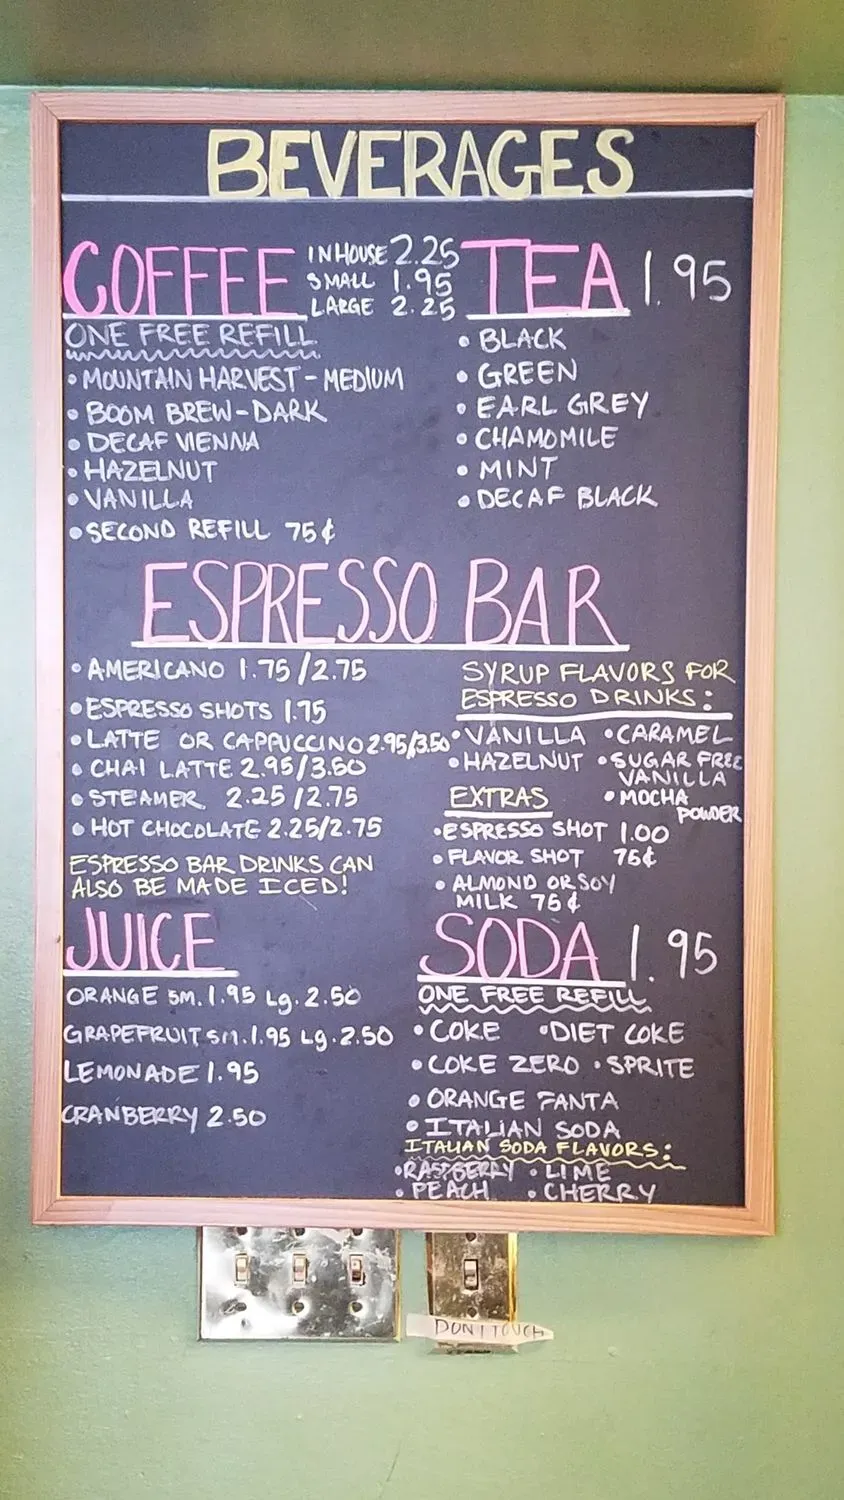 BEVERAGES
COFFEE
IN HOUSE 2.25
SMALL 1.95
LARGE 2.25
ONE FREE REFILL
• MOUNTAIN HARVEST - MEDIUM
• BOOM BREW - DARK
• DECAF VIENNA
• HAZELNUT
• VANILLA
• SECOND REFILL 75¢
TEA 1.95
• BLACK
• GREEN
• EARL GREY
• CHAMOMILE
• MINT
• DECAF BLACK
ESPRESSO BAR
• AMERICANO 1.75/2.75
• ESPRESSO SHOTS 1.75
• LATTE OR CAPPUCCINO 2.95/3.50
• CHAI LATTE 2.95/3.50
• STEAMER 2.25/2.75
• HOT CHOCOLATE 2.25/2.75
ESPRESSO BAR DRINKS CAN
ALSO BE MADE ICED!
SYRUP FLAVORS FOR
ESPRESSO DRINKS:
• VANILLA • CARAMEL
• HAZELNUT • SUGAR FREE
VANILLA
• MOCHA
POWDER
EXTRAS
• ESPRESSO SHOT 1.00
• FLAVOR SHOT 75¢
• ALMOND OR SOY
MILK 75¢
JUICE
ORANGE SM. 1.95 Lg. 2.50
GRAPEFRUIT SM. 1.95 Lg. 2.50
LEMONADE 1.95
CRANBERRY 2.50
SODA 1.95
ONE FREE REFILL
• COKE • DIET COKE
• COKE ZERO • SPRITE
• ORANGE FANTA
• ITALIAN SODA
ITALIAN SODA FLAVORS:
• RASPBERRY • LIME
• PEACH • CHERRY
DON'T TOUCH